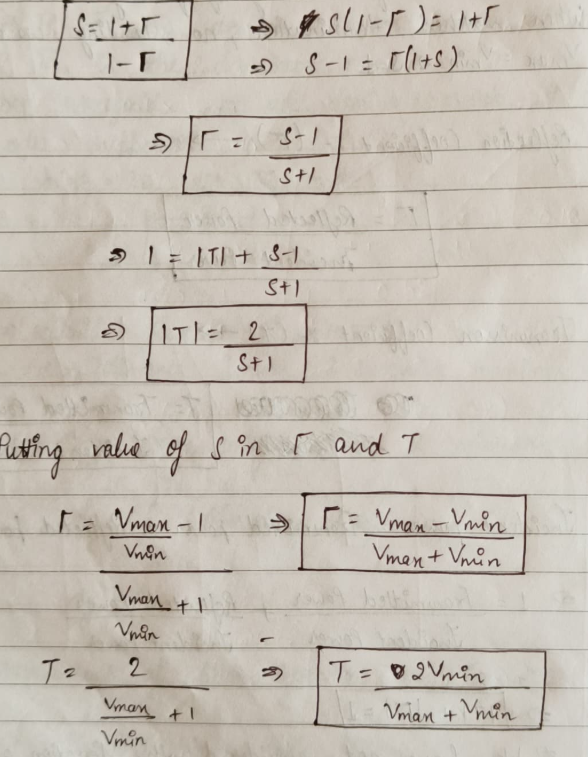 S = 1+Γ / 1-Γ ⇒ S(1-Γ) = 1+Γ
⇒ S-1 = Γ(1+S)
⇒ Γ = S-1 / S+1
⇒ 1 = |T| + S-1 / S+1
⇒ |T| = 2 / S+1
Putting value of S in Γ and T
Γ = Vmax / Vmin - 1 / Vmax / Vmin + 1 ⇒ Γ = Vmax - Vmin / Vmax + Vmin
T = 2 / Vmax / Vmin + 1 ⇒ T = 2Vmin / Vmax + Vmin